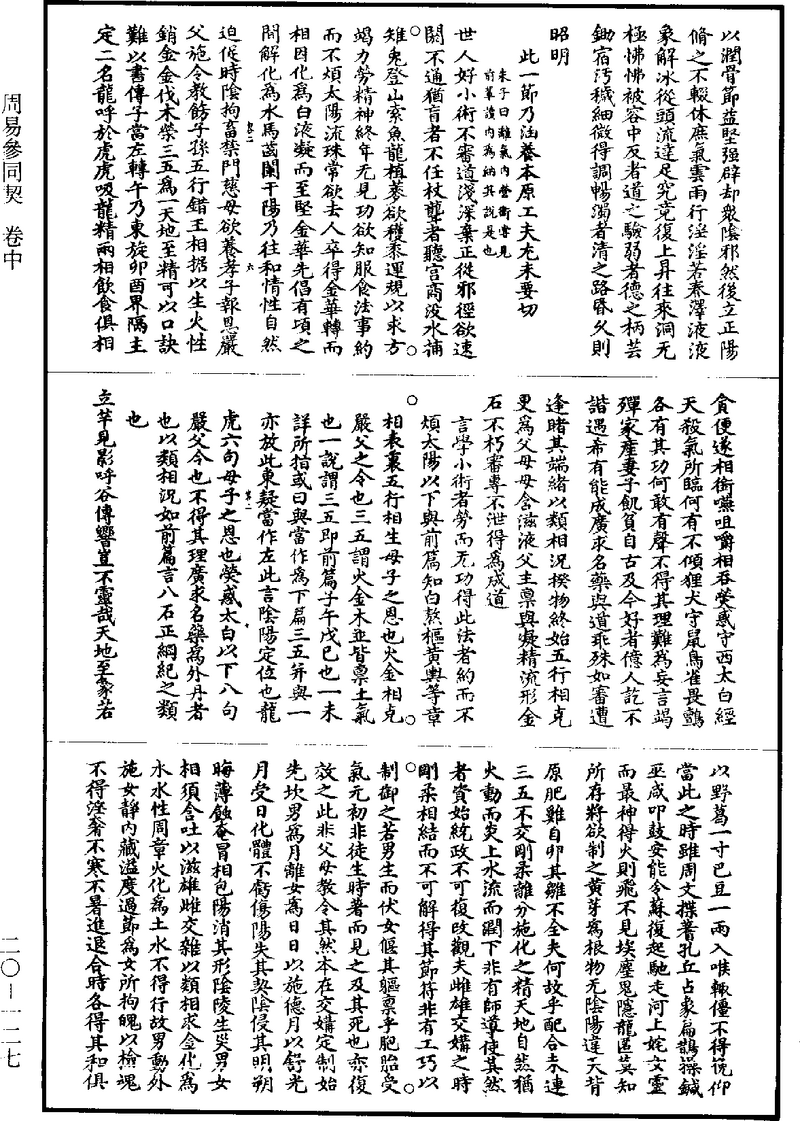 以潤骨節益堅强辟却衆陰邪然後立正陽
脩之不輟休庶氣雲雨行淫淫若春澤液液
象解冰從頭流達足究竟復上昇往來洞无
極怫怫被容中反者道之驗弱者德之柄芸
鋤宿汚穢細微得調暢濁者清之路昏久則
昭明
此一節乃涵養本原工夫尤未要切
朱子曰離氣内營衛常見
前輩讀内爲納其說是也
世人好小術不審道淺深棄正從邪徑欲速
閼不通猶盲者不任杖聾者聽宫商没水捕
雉兎登山索魚龍植麥欲穫黍運規以求方
竭力勞精神終年无見功欲知服食法事約
而不煩太陽流珠常欲去人卒得金華轉而
相因化爲白液凝而至堅金華先倡有項之
間解化爲水馬齒闌干陽乃往和情性自然
迫促時陰拘畜禁門慈母欲養孝子報恩嚴
父施令教飭子孫五行錯王相据以生火性
銷金金伐木榮三五爲一天地至精可以口訣
難以書傳子當左轉午乃東旋卯酉界隔主
定二名龍呼於虎虎吸龍精兩相飲食俱相
貪便遂相銜嚥咀嚼相吞熒惑守西太白經
天殺氣所臨何有不傾狸犬守鼠鳥雀畏鸇
各有其功何敢有聲不得其理難爲妄言竭
殫家產妻子飢貧自古及今好者億人訖不
諧遇希有能成廣求名藥與道乖殊如審遭
逢睹其端緒以類相況揆物終始五行相克
更爲父母母含滋液父主禀與凝精流形金
石不朽審專不泄得爲成道
言學小術者勞而无功得此法者約而不
煩太陽以下與前篇知白敖樞黄轝等章
相表裏五行相生母子之恩也火金相克
嚴父之令也三五謂火金木並皆禀土氣
也一說謂三五即前篇子午戊已也一未
詳所指或曰與當作爲下篇三五并與一
亦放此東疑當作左此言陰陽定位也龍
虎六句母子之恩也熒惑太白以下八句
嚴父令也不得其理廣求名藥爲外丹者
也以類相況如前篇言八石正綱紀之類
也
立竿見影呼谷傳響豈不靈哉天地至象若
以野葛一寸巴豆一兩入喉輒僵不得俛仰
當此之時雖周文揲蓍孔丘占象扁鵲操鍼
巫咸叩鼓安能令蘇復起馳走河上姹女靈
而最神得火則飛不見埃塵鬼隱龍匿莫知
所存將欲制之黄芽爲根物无陰陽違天背
原肥雖自卵其雛不全夫何故乎配合未連
三五不交剛柔離分施化之精天地自然猶
火動而炎上水流而潤下非有師導使其然
者資始統政不可復改觀夫雌雄交媾之時
剛柔相結而不可解得其節符非有工巧以
制御之若男生而伏女偃其軀禀乎胞胎受
氣元初非徒生時著而見之及其死也亦復
效之此非父母教令其然本在交媾定制始
先坎男爲月離女爲日日以施德月以舒光
月受日化體不虧傷陽失其契陰侵其明朔
晦薄蝕奄冒相包陽消其形陰陵生災男女
相須含吐以滋雄雌交雜以類相求金化爲
水水性周章火化爲土水不得行故男動外
施女靜内藏溢度過節爲女所拘魄以檢魂
不得淫奢不寒不暑進退合時各得其和俱
周易參同契 卷中
二〇-一二七